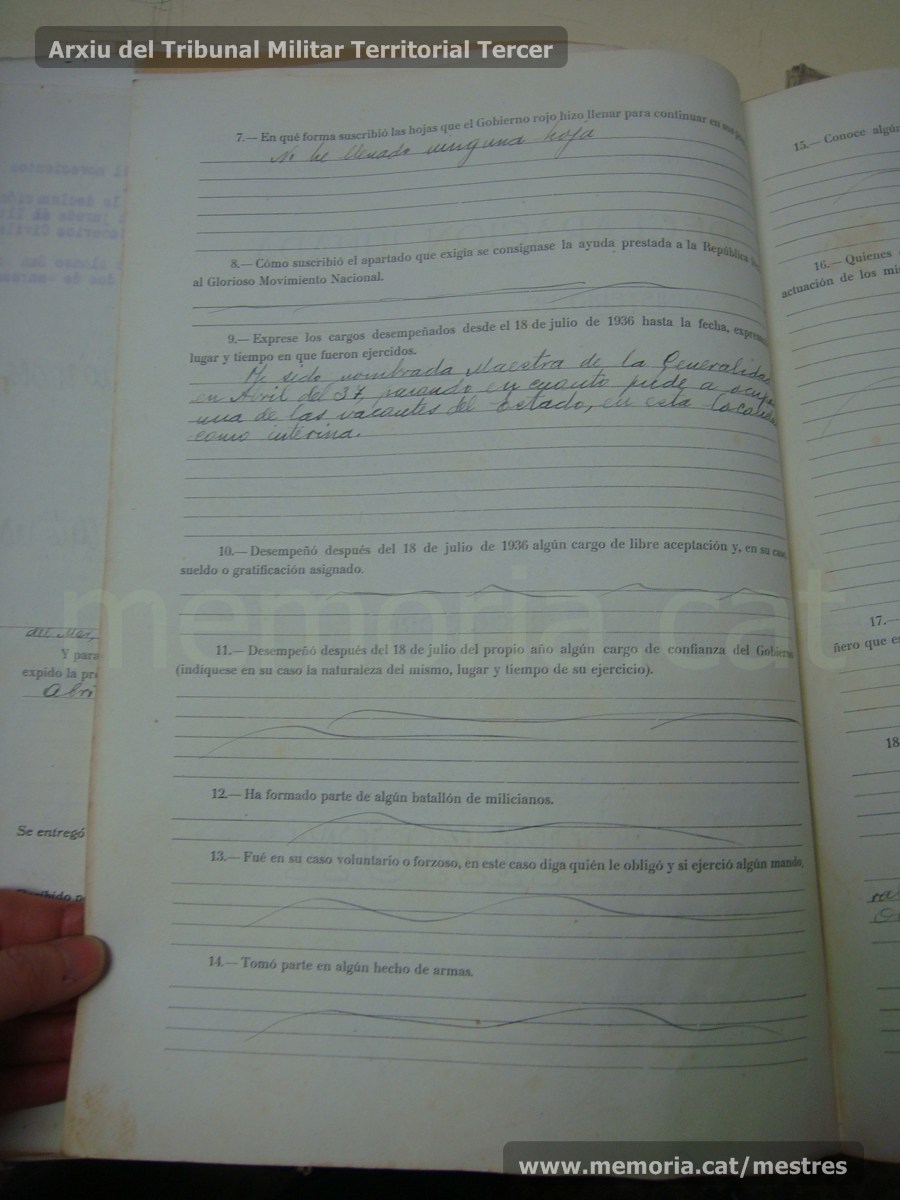 Arxiu del Tribunal Militar Territorial Tercer
7.— En qué forma suscribió las hojas que el Gobierno rojo hizo llenar para continuar en sus
No he llenado ninguna hoja
8.— Cómo suscribió el apartado que exigía se consignase la ayuda prestada a la República
al Glorioso Movimiento Nacional.
9.— Exprese los cargos desempeñados desde el 18 de julio de 1936 hasta la fecha,
lugar y tiempo en que fueron ejercidos.
He sido nombrada Maestra de la Generalidad
en Avril del 37, pasando en cuanto pude a
una de las vacantes del Estado, en esta
como interina.
10.— Desempeñó después del 18 de julio de 1936 algún cargo de libre aceptación y, en su caso,
sueldo o gratificación asignado.
memoria.cat
11.— Desempeñó después del 18 de julio del propio año algún cargo de confianza del
(indíquese en su caso la naturaleza del mismo, lugar y tiempo de su ejercicio).
12.— Ha formado parte de algún batallón de milicianos.
13.— Fué en su caso voluntario o forzoso, en este caso diga quién le obligó y si ejerció algún mando.
14.— Tomó parte en algún hecho de armas.
del Mar,
Y para
expido la
Abri
Se entregó
15.— Conoce
16.— Quienes
actuación de los
17.—
ñero que
18
www.memoria.cat/mestres